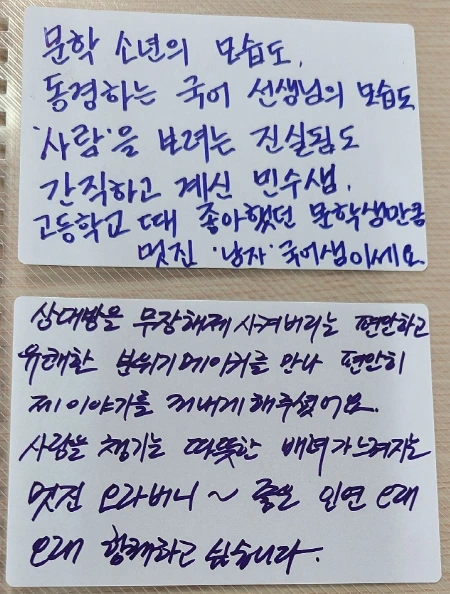 문학 소년의 모습도,
동경하는 국어 선생님의 모습도
'사람'을 보려는 진실됨도
간직하고 계신 민수샘.
고등학교 때 좋아했던 문학샘만큼
멋진 '남자' 국어샘이세요
상대방을 무장해제 시켜버리는 편안하고
유쾌한 분위기메이커를 만나 편안히
제 이야기를 꺼내게 해주셨어요.
사람을 챙기는 따뜻한 배려가 느껴지는
멋진 오라버니 ~ 좋은 인연 오래
오래 함께하고 싶습니다.